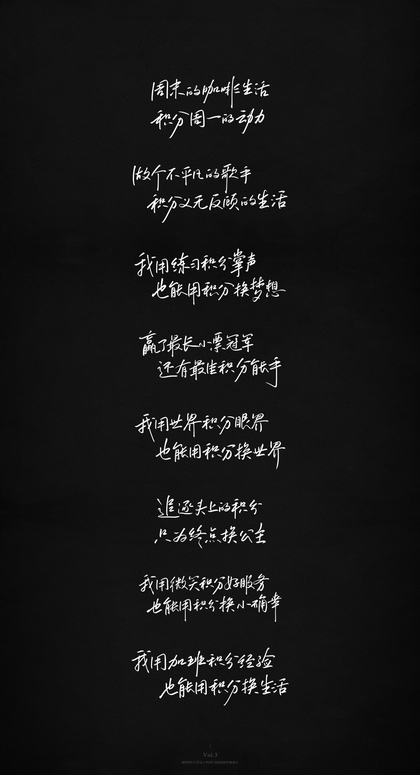 周末的咖啡生活
积分周一的动力
做个不平凡的歌手
积分义无反顾的生活
我用练习积分掌声
也能用积分换梦想
赢了最长小票冠军
还有最佳积分能手
我用世界积分眼界
也能用积分换世界
追逐头上的积分
只为终点换公主
我用微笑积分好服务
也能用积分换小确幸
我用加班积分经验
也能用积分换生活
Vol.3